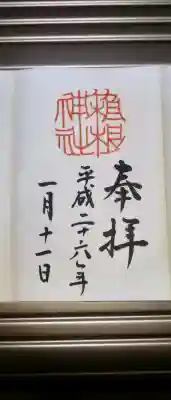 植根
神社
奉拝
平成二十六年
一月十一日